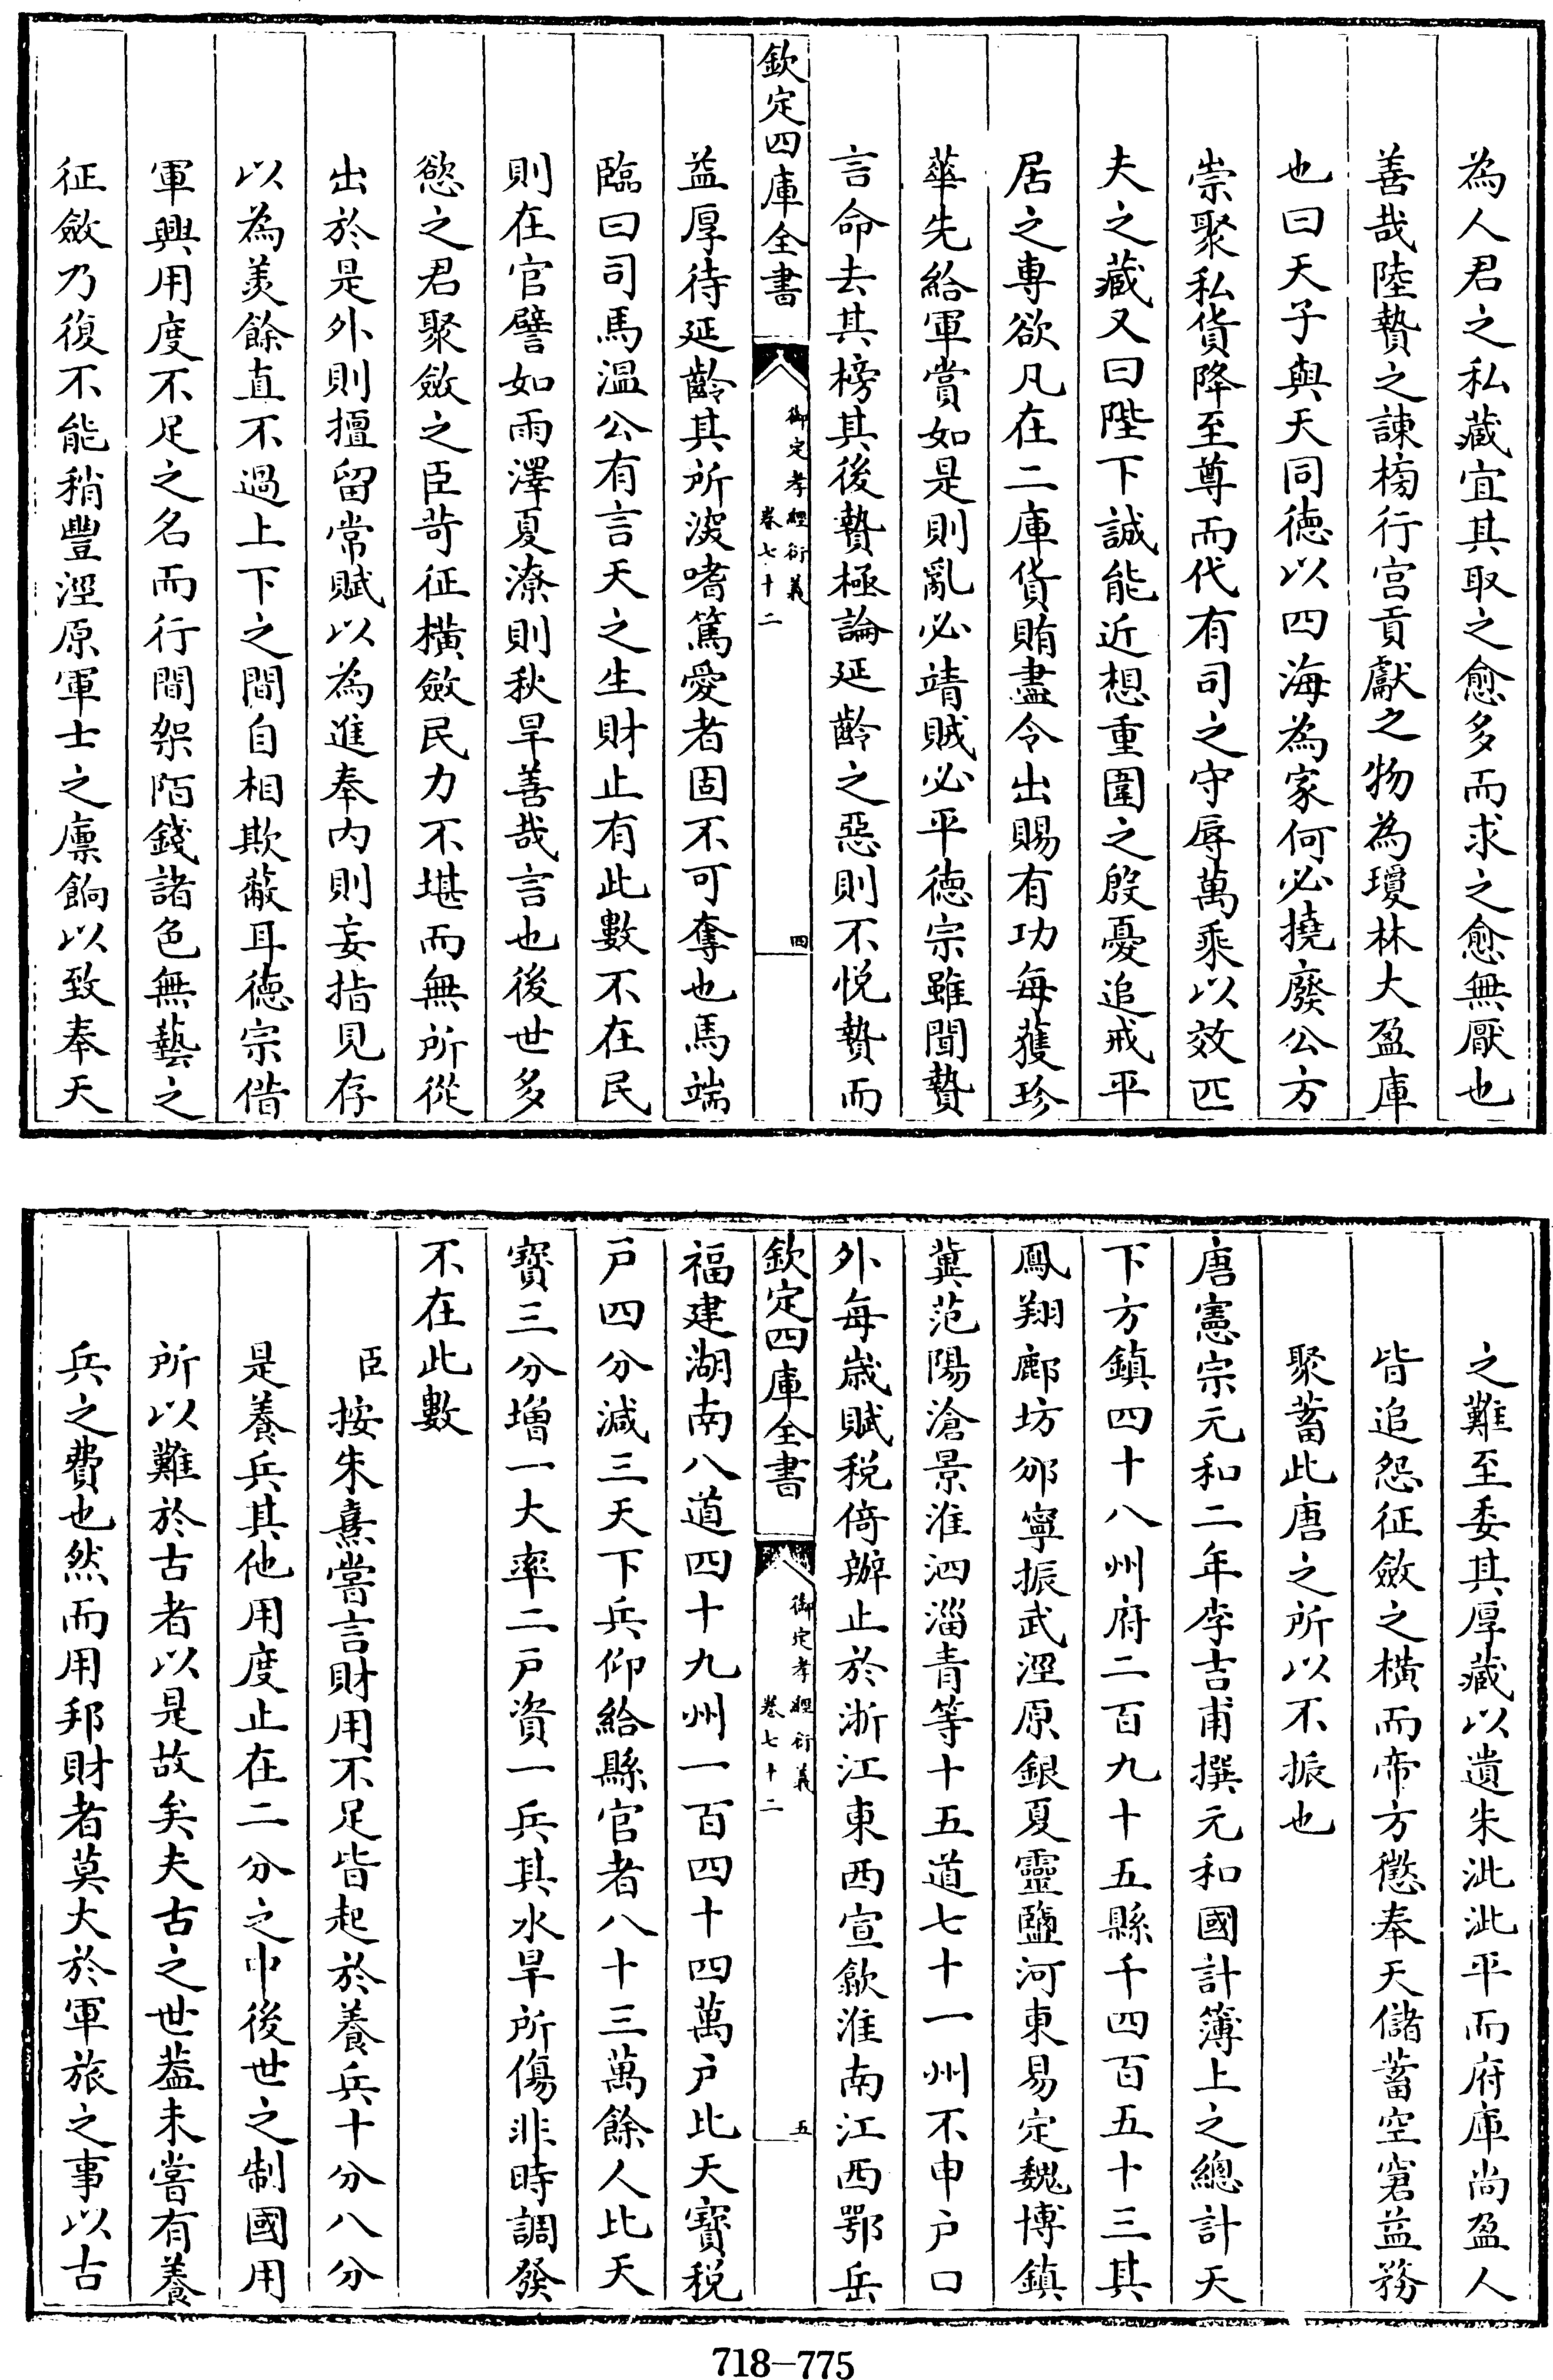 為人君之私藏宜其取之愈多而求之愈無厭也
善哉陸贄之諫榜行宮貢獻之物為瓊林大盈庫
也曰天子與天同德以四海為家何必撓廢公方
崇聚私貨降至尊而代有司之守辱萬乘以效匹
夫之藏又曰陛下誠能近想重圍之殷憂追戒平
居之專欲凡在二庫貨賄盡令出賜有功每獲珍
華先給軍賞如是則亂必靖賊必平德宗雖聞贄
言命去其榜其後贄極論延齡之惡則不悅贄而
欽定四庫全書
御定孝經衍義
卷七十二
四
益厚待延齡其所浚嗜篤愛者固不可奪也馬端
臨曰司馬溫公有言天之生財止有此數不在民
則在官譬如雨澤夏潦則秋旱善哉言也後世多
慾之君聚斂之臣苛征橫斂民力不堪而無所從
出於是外則擅留常賦以為進奉內則妄指見存
以為羨餘直不過上下之間自相欺蔽耳德宗借
軍興用度不足之名而行間架陌錢諸色無藝之
征斂乃復不能稍豐涇原軍士之廩餉以致奉天
之難至委其厚藏以遺朱泚泚平而府庫尚盈人
皆追怨征斂之橫而帝方懲奉天儲蓄空窘益務
聚蓄此唐之所以不振也
唐憲宗元和二年李吉甫撰元和國計簿上之總計天
下方鎮四十八州府二百九十五縣千四百五十三其
鳳翔鄜坊邠寧振武涇原銀夏靈鹽河東易定魏博鎮
冀范陽滄景淮泗淄青等十五道七十一州不申户口
外每歲賦稅倚辦止於浙江東西宣歙淮南江西鄂岳
欽定四庫全書
御定孝經衍義
卷七十二
五
福建湖南八道四十九州一百四十四萬户比天寶稅
户四分減三天下兵仰給縣官者八十三萬餘人比天
寶三分增一大率二户資一兵其水旱所傷非時調發
不在此數
臣按朱熹嘗言財用不足皆起於養兵十分八分
是養兵其他用度止在二分之中後世之制國用
所以難於古者以是故矣夫古之世葢未嘗有養
兵之費也然而用邦財者莫大於軍旅之事以古
718-775